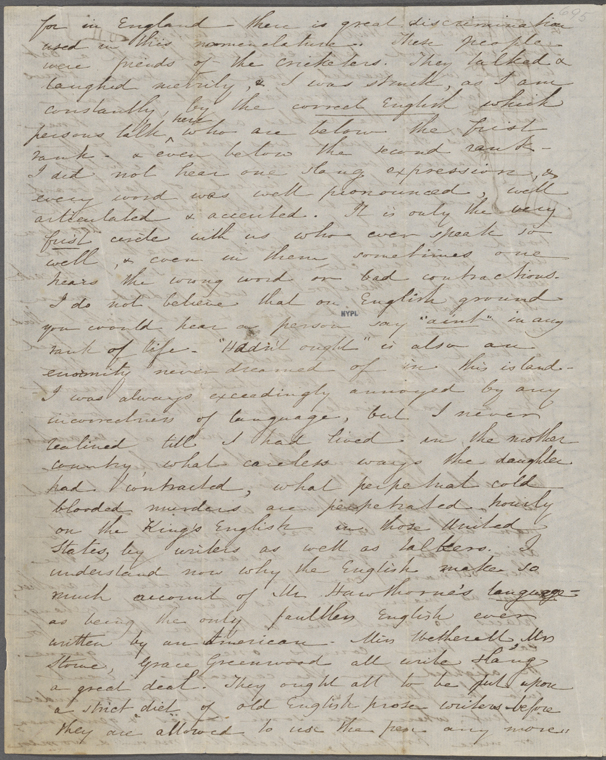 695
for in England there is great discrimination
used in this nomenclature. These people
were friends of the cricketers. They talked &
laughed merrily, & I was struck, as I am
constantly, by the correct English which
persons talk here, who are below the first
rank - & even below the second rank -
I did not hear one slang expression, &
every word was well pronounced, well
articulated & accented. It is only the very
first circle with us who ever speak so
well, & even in them sometimes one
hears the wrong word or bad contractions.
I do not believe that on English ground
NYPL
you would hear a person say "aint" in any
rank of life - "Hadn't ought" is also an
enormity never dreamed of in this island -
I was always exceedingly annoyed by any
incorrectness of language, but I never
realized till I had lived in the mother
country, what careless ways the daughter
had contracted, what perpetual cold
blooded murders are perpetrated hourly
on the King's English in those United
States, by writers as well as talkers. I
understand now why the English make so
much account of Mr Hawthorne's language -
as being the only faultless English ever
written by an American. Miss Wetherell, Mrs
Stowe, Grace Greenwood all write slang
a great deal. They ought all to be put upon
a strict diet of old English prose writers before
they are allowed to use the pen any more.